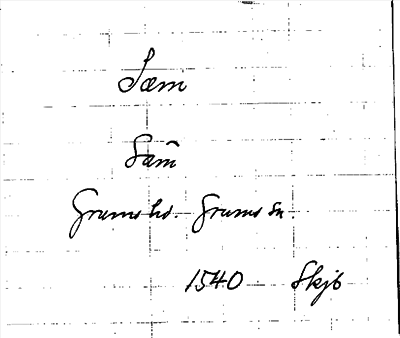 Sæm
Sam̃
Grums hd. Grums sn
1540 Skjb